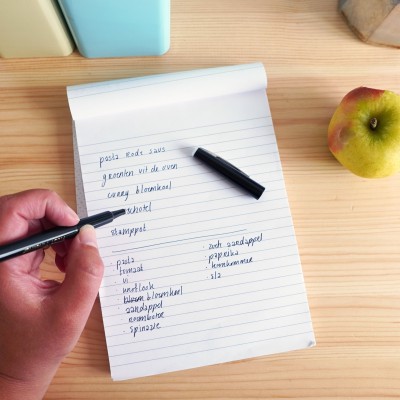 pasta rode saus
groenten uit de oven
curry bloemkool
schotel
stamppot
· pasta
tomaat
ui
knoflook
bloemkool
aardappel
· spinazie
· zoete aardappel
· paprika
· komkommer
· sla